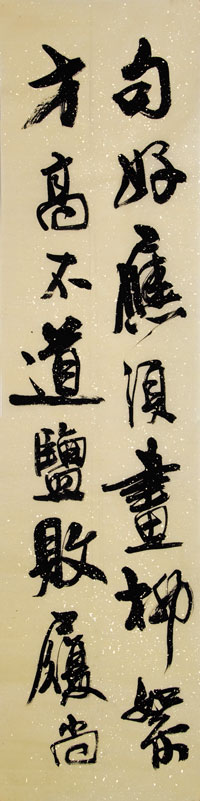 句好應須畫柳絮
才高不道鹽敗履尚